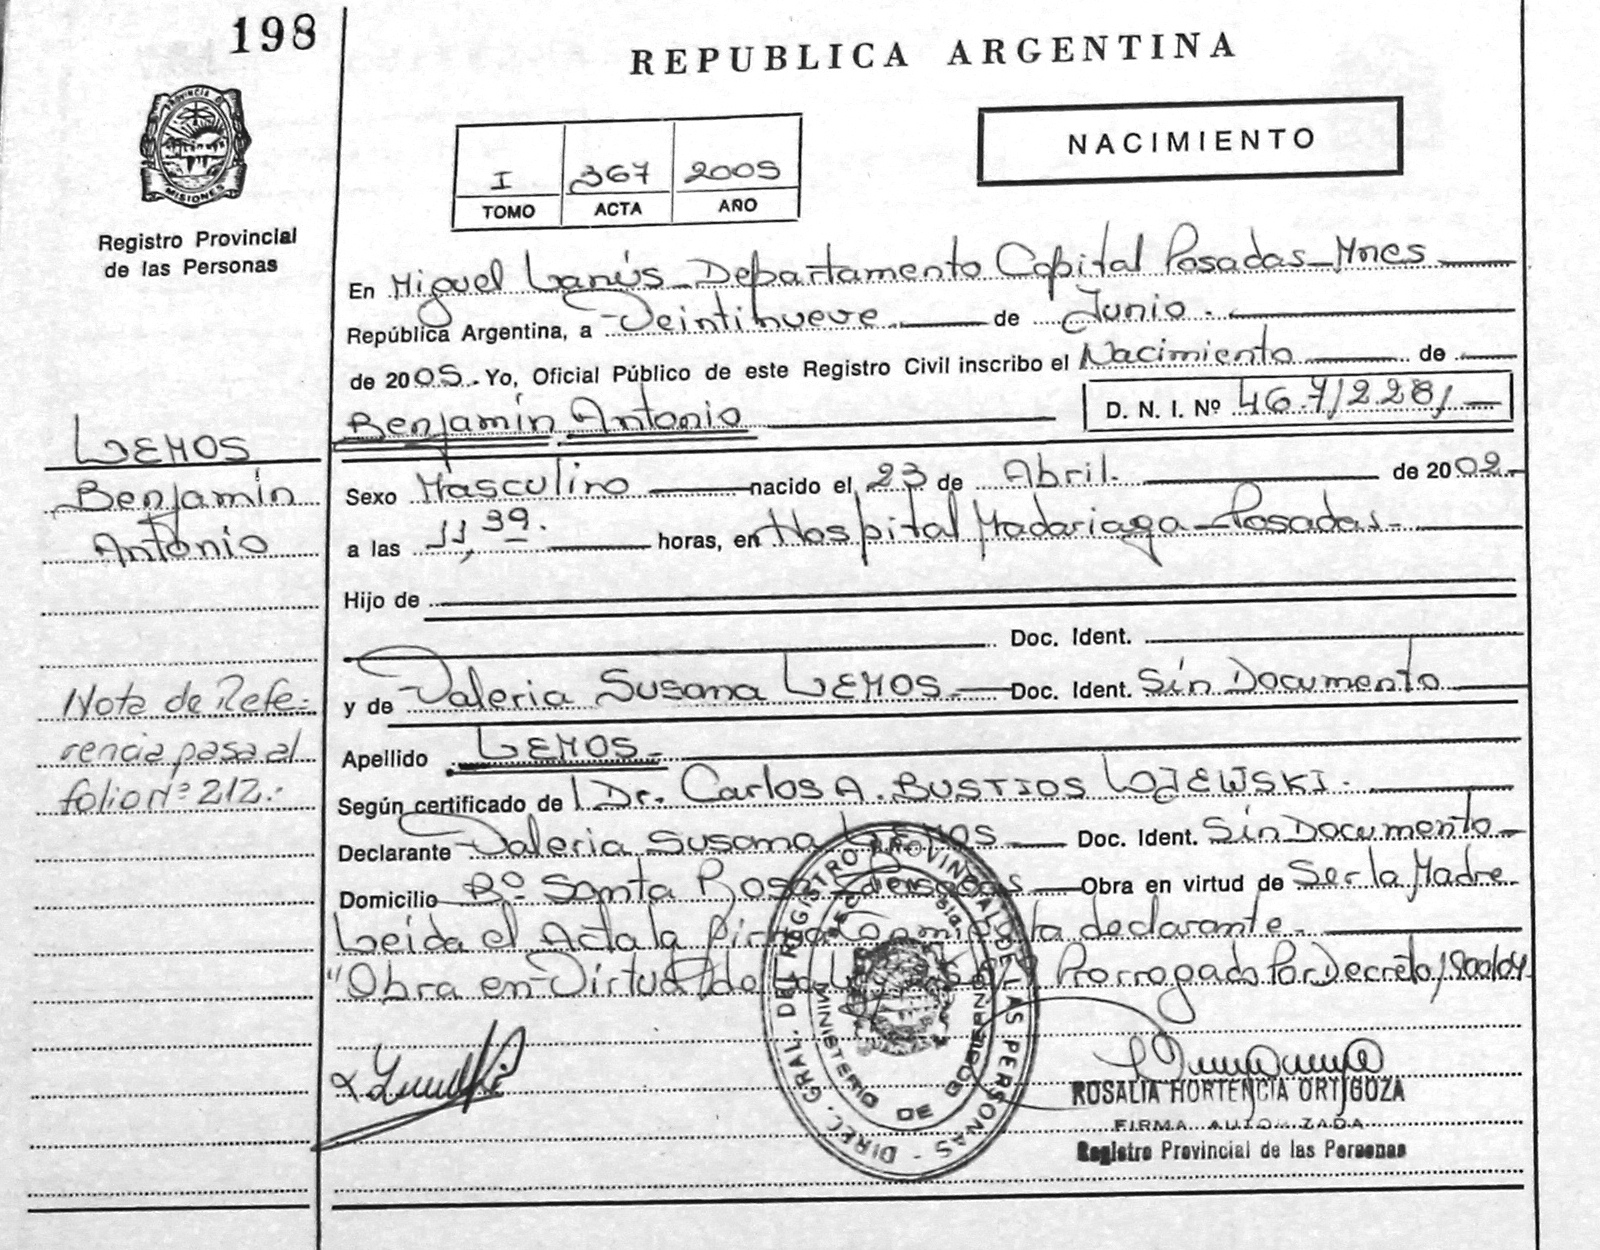 198
REPUBLICA ARGENTINA
NACIMIENTO
I 367 2005
TOMO ACTA AÑO
PROVINCIA D
MISIONES
Registro Provincial
de las Personas
En Miguel Lanús Departamento Capital Posadas Mnes
República Argentina, a Veintinueve de Junio.
de 2005. Yo, Oficial Público de este Registro Civil inscribo el Nacimiento de
Benjamín Antonio D. N. I. Nº
LEMOS
Benjamín
Antonio
Sexo Masculino nacido el 23 de Abril. de 2002
a las 11,39. horas, en Hospital Madariaga - Posadas.
Hijo de
Doc. Ident.
y de Valeria Susana LEMOS Doc. Ident. Sin Documento
Nota de Refe-
rencia pasa al
folio Nº 212.-
Apellido LEMOS.-
Según certificado de Dr. Carlos A. BUSTIOS LOJEWSKI.
Declarante Valeria Susana LEMOS Doc. Ident. Sin Documento
Domicilio Bº Santa Rosa Obra en virtud de Ser la Madre
Leida el Acta la declarante.
"Obra en Virtud de la Prorrogado Por Decreto 1900/04
DIREC. GRAL. DEL REGISTRO PROVINCIAL DE LAS PERSONAS -
MINISTERIO DE GOBIERNO
ROSALIA HORTENCIA ORTIGOZA
FIRMA AUTORIZADA
Registro Provincial de las Personas